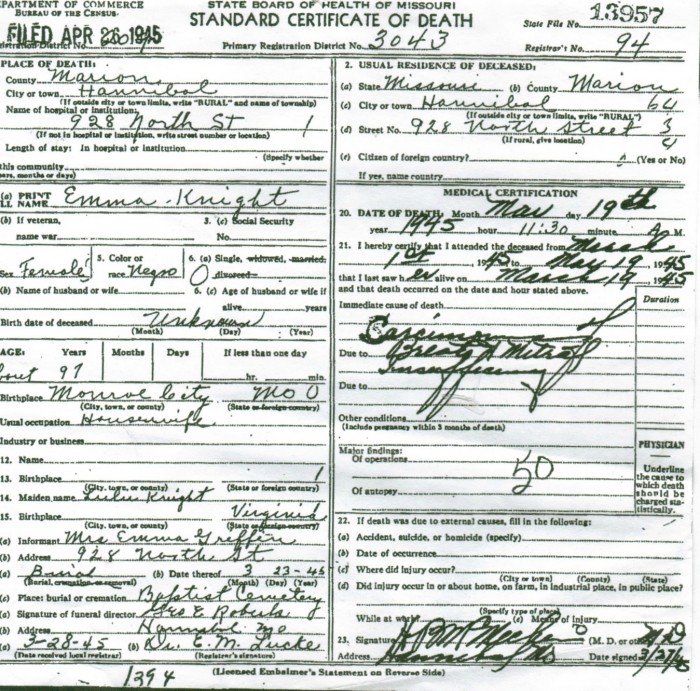 DEPARTMENT OF COMMERCE
BUREAU OF THE CENSUS
STATE BOARD OF HEALTH OF MISSOURI
STANDARD CERTIFICATE OF DEATH
State File No. 13957
FILED APR 1945
Registration District No.
Primary Registration District No. 3043
Registrar's No. 94
PLACE OF DEATH:
County Marion
City or town Hannibal
(If outside city or town limits, write "RURAL" and name of township)
Name of hospital or institution:
928 North St 1
(If not in hospital or institution, write street number or location)
Length of stay: In hospital or institution
(Specify whether
this community
years, months or days)
2. USUAL RESIDENCE OF DECEASED:
(a) State Missouri (b) County Marion
(c) City or town Hannibal 64
(If outside city or town limits, write "RURAL")
(d) Street No. 928 North Street 3
(If rural, give location) 4
(e) Citizen of foreign country? (Yes or No)
If yes, name country
(a) PRINT
FULL NAME Emma Knight
(b) If veteran,
name war
3. (c) Social Security
No.
Sex Female
5. Color or
race Negro
6. (a) Single, widowed, married,
0 divorced
(b) Name of husband or wife
6. (c) Age of husband or wife if
alive years
Birth date of deceased Unknown
(Month) (Day) (Year)
AGE: Years Months Days If less than one day
about 97 hr. min.
Birthplace Monroe City Mo 0
(City, town, or county) (State or foreign country)
Usual occupation Housewife
Industry or business
12. Name
13. Birthplace 1
(City, town, or county) (State or foreign country)
14. Maiden name Knight
15. Birthplace Virginia
(City, town, or county) (State or foreign country)
(a) Informant Mrs Emma Griffin
(b) Address 928 North St
(a) Burial (b) Date thereof 3 23-45
(Burial, cremation, or removal) (Month) (Day) (Year)
(c) Place: burial or cremation Baptist Cemetery
(a) Signature of funeral director Geo E Roberts
(b) Address Hannibal Mo
(a) 3-28-45 (b) Dr. E. M. Lucke
(Date received local registrar) (Registrar's signature)
MEDICAL CERTIFICATION
20. DATE OF DEATH: Month Mar day 19th
year 1945 hour 11:30 minute M.
21. I hereby certify that I attended the deceased from March
1st, 1945 to May 19, 1945
that I last saw her alive on March 19 1945
and that death occurred on the date and hour stated above.
Duration
Immediate cause of death
Carcinoma of
Due to Breast & Mitral
Insufficiency
Due to
Other conditions
(Include pregnancy within 3 months of death)
PHYSICIAN
Major findings:
Of operations
50
Of autopsy
Underline
the cause to
which death
should be
charged sta-
tistically.
22. If death was due to external causes, fill in the following:
(a) Accident, suicide, or homicide (specify)
(b) Date of occurrence
(c) Where did injury occur?
(City or town) (County) (State)
(d) Did injury occur in or about home, on farm, in industrial place, in public place?
(Specify type of place)
While at work? (e) Means of injury
23. Signature (M. D. or other)
Address Hannibal Mo Date signed 3/27/45
1394
(Licensed Embalmer's Statement on Reverse Side)